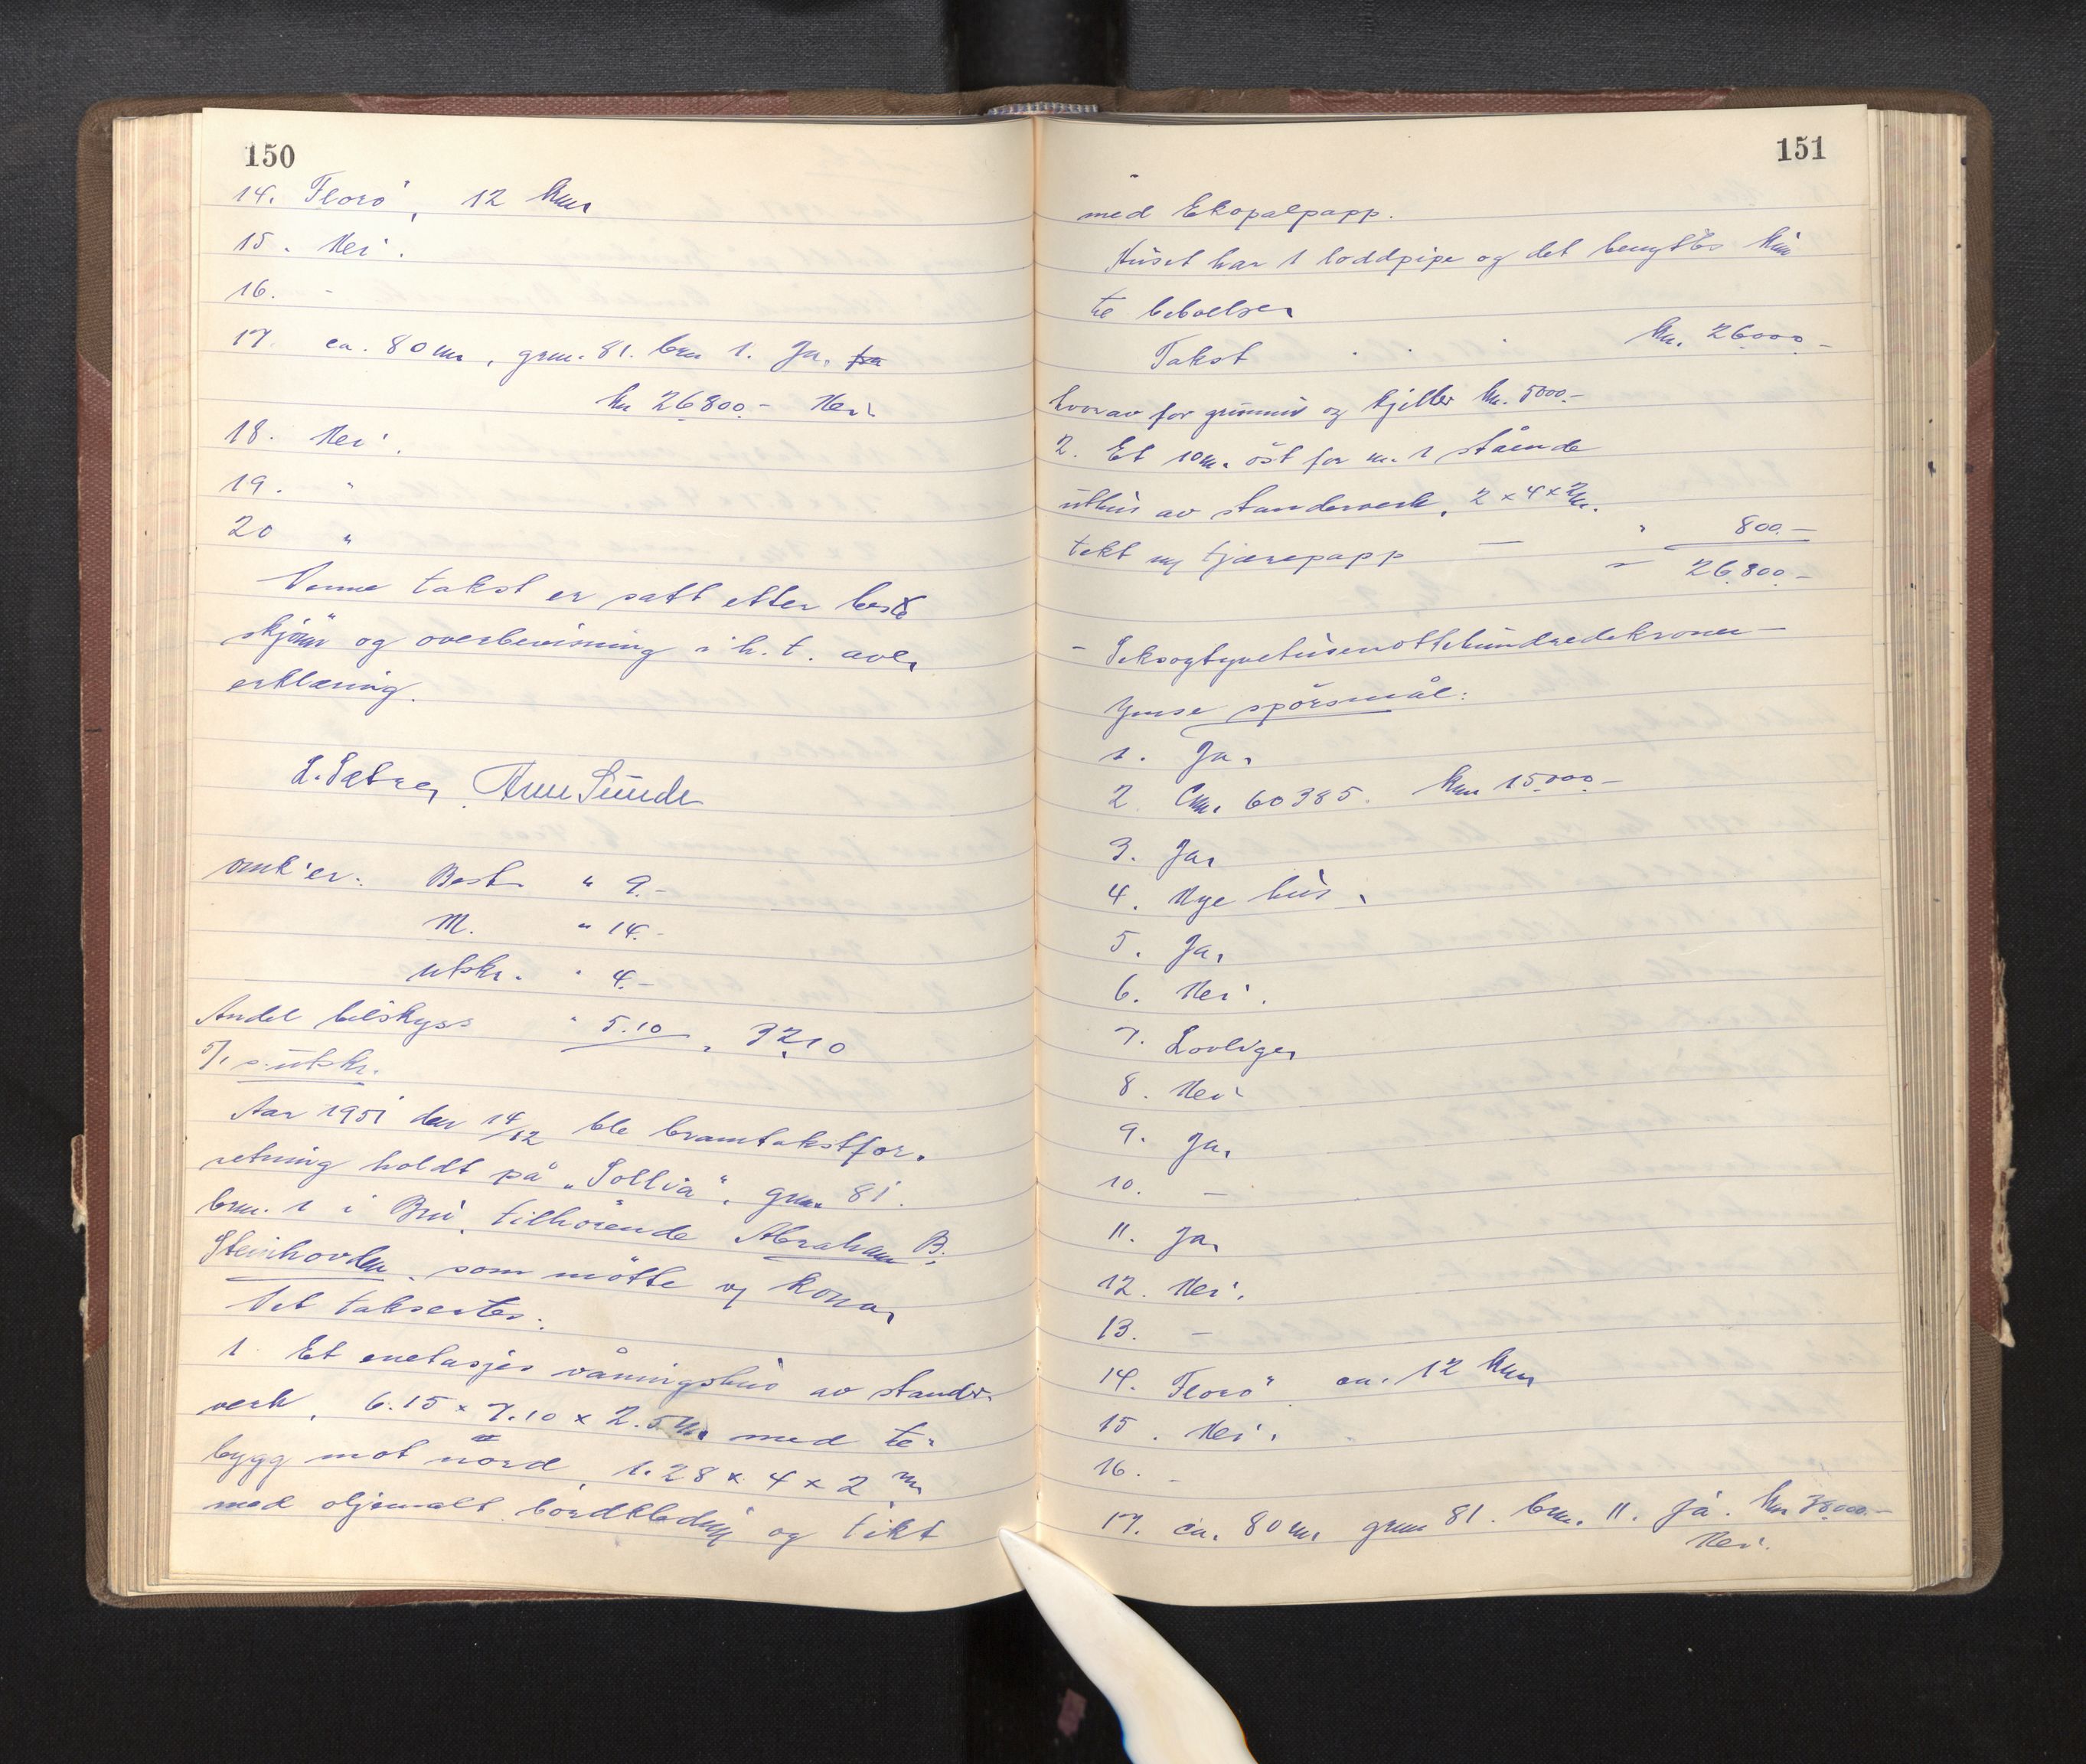 150
14. Florö, 12 km
15. Nei.
16. -
17. ca. 80 m, gnr. 81. bnr 1. Ja.
kr 26800.- Nei
18. Nei.
19. "
20 "
Denne takst er satt etter beste
skjönn og overbevisning i h. t. avl.
erklæring.
L. Sætre, Arne Sunde
omk'er: Best. " 9.-
M. " 14.-
utskr. " 4.-
Andel bilskyss " 5.10, 32.10
5/1 s. utskr.
Aar 1951 den 14/12 ble branntakstfor-
retning holdt på „Sollia“, gnr. 81.
bnr. 1 i Bru, tilhörende Abraham B.
Steinhovden, som mötte og kona,
Det taksertes:
1. Et enetasjes våningshus av stender-
verk, 6.15 x 7.10 x 2.5 m. med til-
bygg mot nord, 1.28 x 4 x 2 m
med oljemalt bordkledning og tekt
151
med Ekopalpapp.
Huset har 1 loddpipe og det benyttes kun
til beboelse,
Takst . . . kr. 26000.-
hvorav for grunnm og kjeller kr. 5000.-
2. Et 10 m. öst for nr. 1 stående
uthus av stenderverk, 2 x 4 x 2 m.
tekt m/ tjærepapp — " 800.-
" 26.800.-
- Seksogtyvetusenottehundredekroner -
Ymse spörsmål:
1. Ja,
2. Cnr. 60385. kr. 15.000.-
3. Ja,
4. Nye hus.
5. Ja,
6. Nei.
7. Lovlige,
8. Nei
9. Ja,
10. -
11. Ja,
12. Nei.
13. -
14. Florö ca. 12 km
15. Nei.
16. -
17. ca. 80 m, gnr 81. bnr. 11. Ja. kr
Nei.